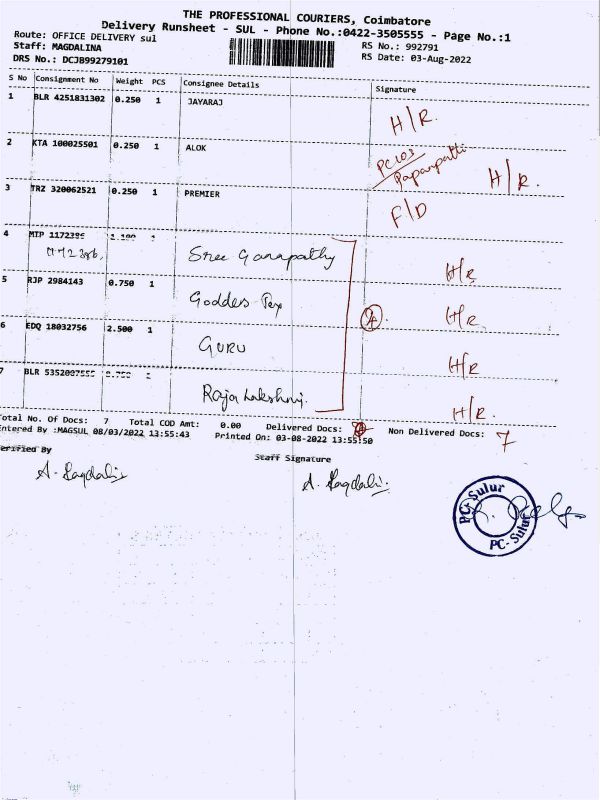 THE PROFESSIONAL COURIERS, Coimbatore
Delivery Runsheet - SUL - Phone No.:0422-3505555 - Page No.:1
Route: OFFICE DELIVERY sul
RS No.: 992791
Staff: MAGDALINA
RS Date: 03-Aug-2022
DRS No.: DCJB99279101
S No Consignment No Weight PCS Consignee Details Signature
1 BLR 4251831302 0.250 1 JAYARAJ H/R.
2 KTA 100025501 0.250 1 ALOK PC103 Papanpatti H/R.
3 TRZ 320062521 0.250 1 PREMIER F/D
4 MTP 1172386 1 Sree Ganapathy H/R
5 RJP 2984143 0.750 1 Goddess H/R
6 EDQ 18032756 2.500 1 GURU H/R
7 BLR Raja Lakshmi. H/R.
Total No. Of Docs: 7 Total COD Amt: 0.00 Delivered Docs: Non Delivered Docs: 7
Entered By :MAGSUL 08/03/2022 13:55:43 Printed On: 03-08-2022 13:55:50
Verified By Staff Signature
PC- Sulur
PC- Sulur